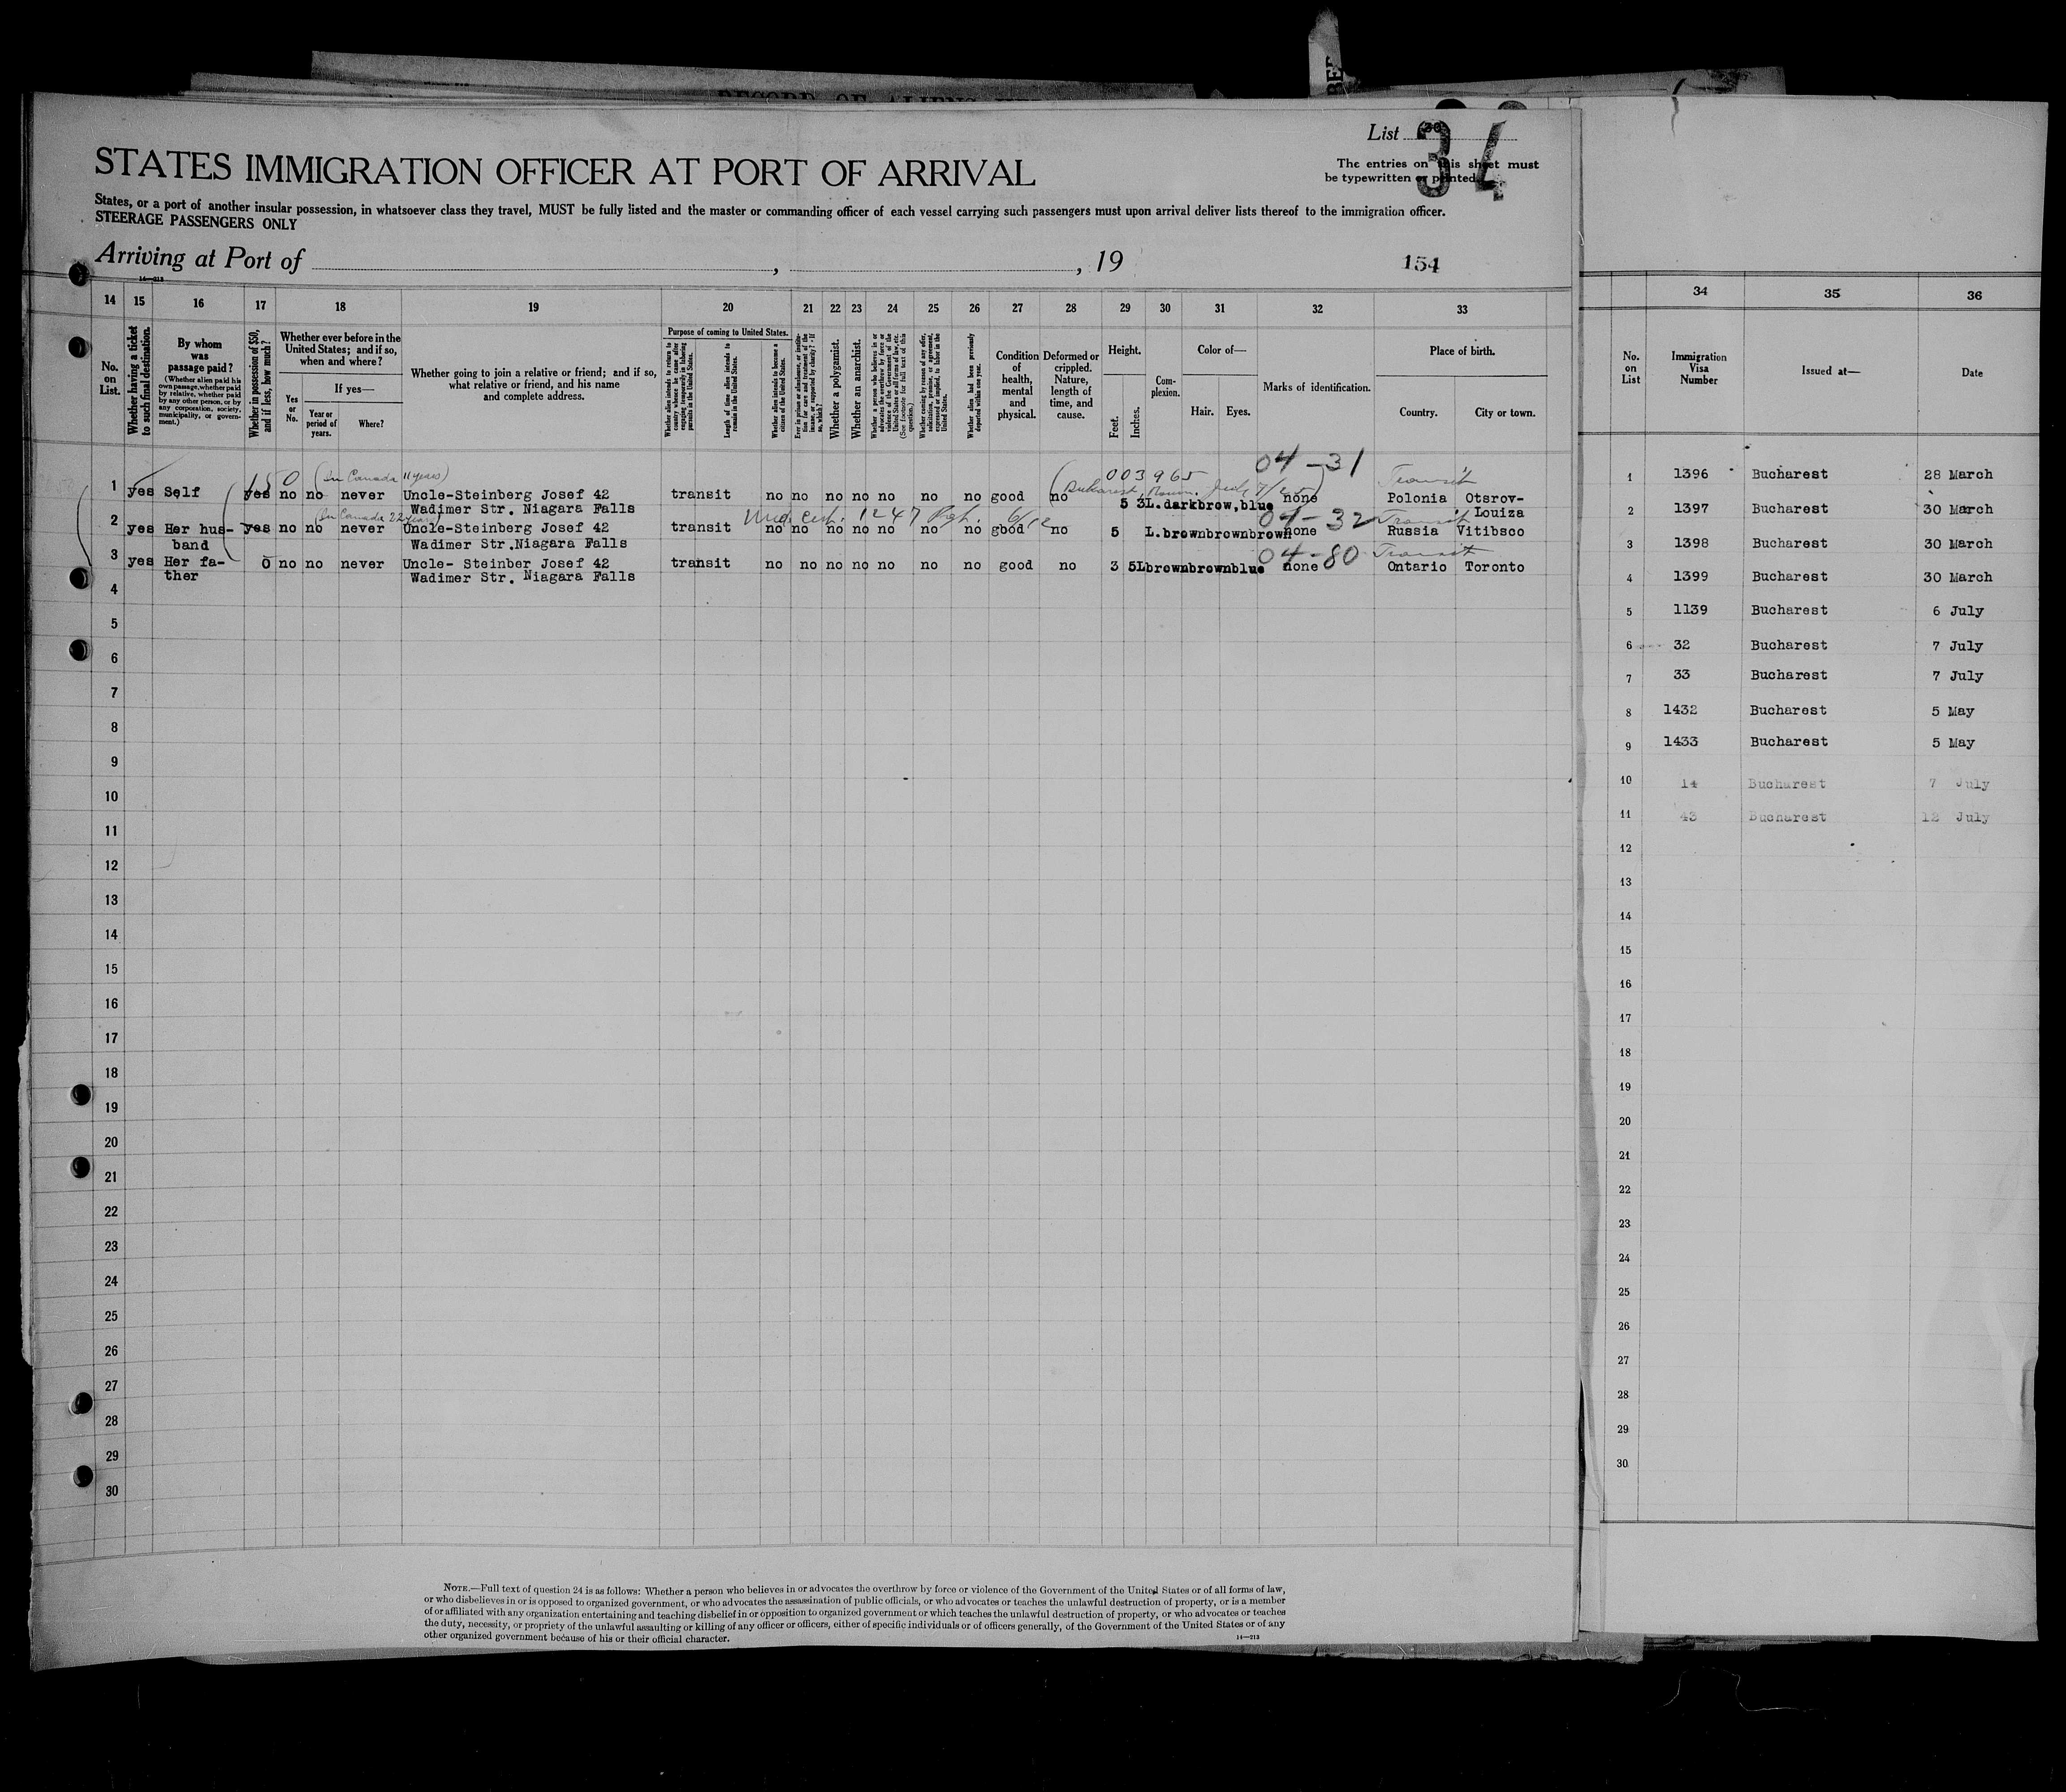 RECORD OF ALIENS
List 34
The entries on this sheet must
be typewritten or printed.
STATES IMMIGRATION OFFICER AT PORT OF ARRIVAL
States, or a port of another insular possession, in whatsoever class they travel, MUST be fully listed and the master or commanding officer of each vessel carrying such passengers must upon arrival deliver lists thereof to the immigration officer.
STEERAGE PASSENGERS ONLY
Arriving at Port of , , 19
154
14—213
14 15 16 17 18 19 20 21 22 23 24 25 26 27 28 29 30 31 32 33
No. on List.
Whether having a ticket to such final destination.
By whom was passage paid?
(Whether alien paid his own passage, whether paid by relative, whether paid by any other person, or by any corporation, society, municipality, or government.)
Whether in possession of $50, and if less, how much?
Whether ever before in the United States; and if so, when and where?
If yes—
Yes or No.
Year or period of years.
Where?
Whether going to join a relative or friend; and if so, what relative or friend, and his name and complete address.
Purpose of coming to United States.
Whether alien intends to return to country whence he came after engaging temporarily in laboring pursuits in the United States.
Length of time alien intends to remain in the United States.
Whether alien intends to become a citizen of the United States.
Ever in prison or almshouse, or institution for care and treatment of the insane, or supported by charity? If so, which?
Whether a polygamist.
Whether an anarchist.
Whether a person who believes in or advocates the overthrow by force or violence of the Government of the United States or all forms of law, etc. (See footnote for full text of this question.)
Whether coming by reason of any offer, solicitation, promise, or agreement, expressed or implied, to labor in the United States.
Whether alien had been previously deported within one year.
Condition of health, mental and physical.
Deformed or crippled. Nature, length of time, and cause.
Height.
Feet.
Inches.
Complexion.
Color of—
Hair.
Eyes.
Marks of identification.
Place of birth.
Country.
City or town.
150 (In Canada 11 years) 003965 04-31 Transit
(Bukarest, Roum. July 7/25)
1 yes Self yes no no never Uncle-Steinberg Josef 42 transit no no no no no no no good no 5 3 L. darkbrow, blue none Polonia Otsrov-
Wadimer Str. Niagara Falls Louiza
(In Canada 22 years) Med. Cert. 1247 6/12 04-32 Transit
2 yes Her hus- yes no no never Uncle-Steinberg Josef 42 transit no no no no no no no good no 5 L. brown brown brown none Russia Vitibsco
band Wadimer Str. Niagara Falls
04-80 Transit
3 yes Her fa- 0 no no never Uncle- Steinber Josef 42 transit no no no no no no no good no 3 5 L brown brown blue none Ontario Toronto
ther Wadimer Str. Niagara Falls
4
5
6
7
8
9
10
11
12
13
14
15
16
17
18
19
20
21
22
23
24
25
26
27
28
29
30
NOTE.—Full text of question 24 is as follows: Whether a person who believes in or advocates the overthrow by force or violence of the Government of the United States or of all forms of law,
or who disbelieves in or is opposed to organized government, or who advocates the assassination of public officials, or who advocates or teaches the unlawful destruction of property, or is a member
of or affiliated with any organization entertaining and teaching disbelief in or opposition to organized government or which teaches the unlawful destruction of property, or who advocates or teaches
the duty, necessity, or propriety of the unlawful assaulting or killing of any officer or officers, either of specific individuals or of officers generally, of the Government of the United States or of any
other organized government because of his or their official character.
14—213
34 35 36
No. on List
Immigration Visa Number
Issued at—
Date
1 1396 Bucharest 28 March
2 1397 Bucharest 30 March
3 1398 Bucharest 30 March
4 1399 Bucharest 30 March
5 1139 Bucharest 6 July
6 32 Bucharest 7 July
7 33 Bucharest 7 July
8 1432 Bucharest 5 May
9 1433 Bucharest 5 May
10 14 Bucharest 7 July
11 43 Bucharest 12 July
12
13
14
15
16
17
18
19
20
21
22
23
24
25
26
27
28
29
30